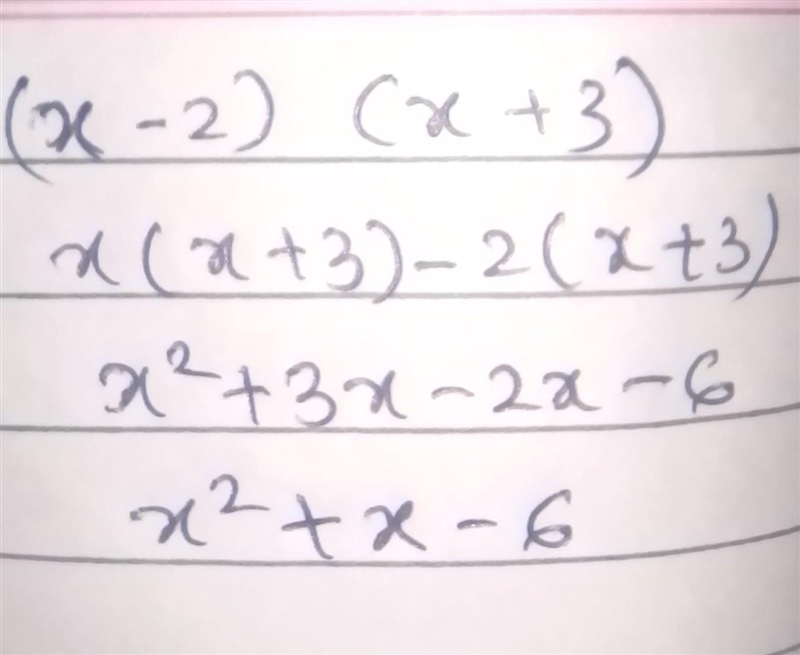 (x - 2) (x + 3)
x(x + 3) - 2(x + 3)
x² + 3x - 2x - 6
x² + x - 6